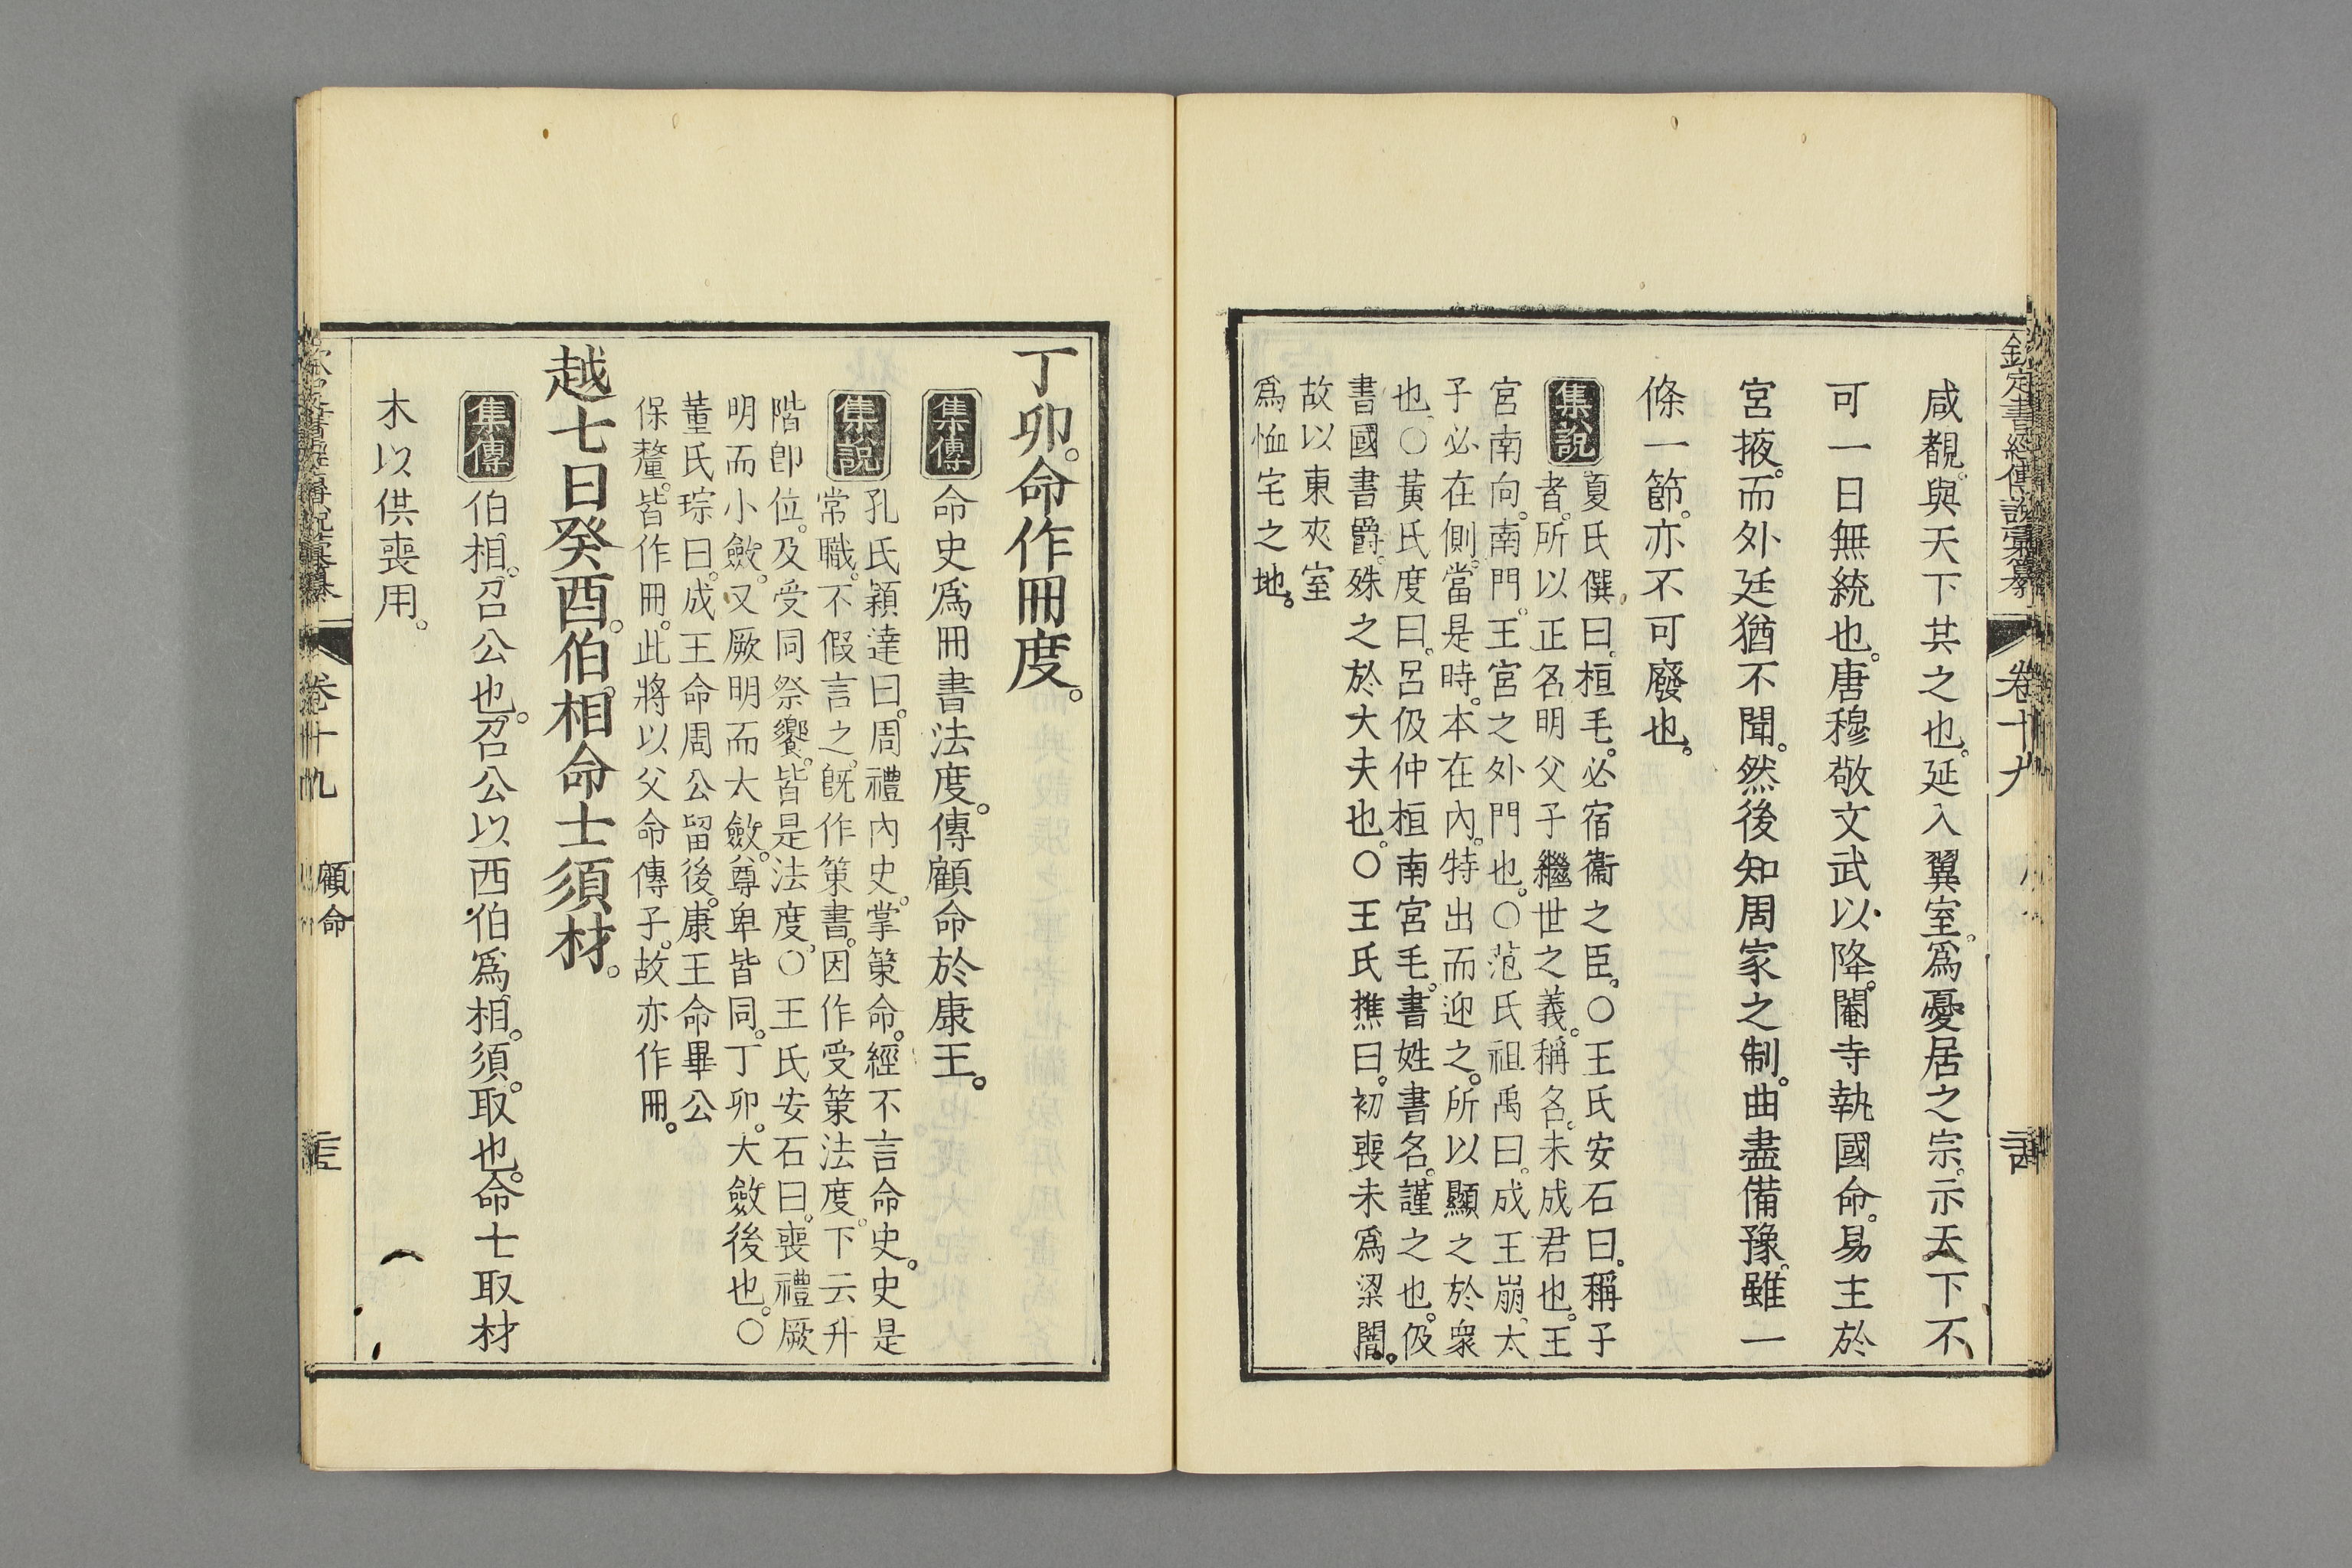 欽定書經傳說彙纂 卷十九
咸覩。與天下共之也。延入翼室。爲憂居之宗。示天下不
可一日無統也。唐穆敬文武以降。閹寺執國命。易主於
宮掖。而外廷猶不聞。然後知周家之制。曲盡備豫。雖一
條一節。亦不可廢也。
集說
夏氏僎曰。桓毛。必宿衞之臣。○王氏安石曰。稱子
者。所以正名明父子繼世之義。稱名。未成君也。王
宮南向。南門。王宮之外門也。○范氏祖禹曰。成王崩。太
子必在側。當是時。本在內。特出而迎之。所以顯之於衆
也。○黃氏度曰。呂伋仲桓南宮毛。書姓書名。謹之也。伋
書國書爵。殊之於大夫也。○王氏樵曰。初喪未爲梁闇。
故以東夾室
爲恤宅之地。
丁卯。命作冊度。
集傳
命史爲冊書法度。傳顧命於康王。
集說
孔氏穎達曰。周禮內史。掌策命。經不言命史。史是
常職。不假言之。旣作策書。因作受策法度。下云升
階卽位。及受同祭饗。皆是法度。○王氏安石曰。喪禮厥
明而小斂。又厥明而大斂。尊卑皆同。丁卯。大斂後也。○
董氏琮曰。成王命周公留後。康王命畢公
保釐。皆作冊。此將以父命傳子。故亦作冊。
越七日癸酉。伯相命士須材。
集傳
伯相。召公也。召公以西伯爲相。須。取也。命士取材
木以供喪用。
卷十九 顧命